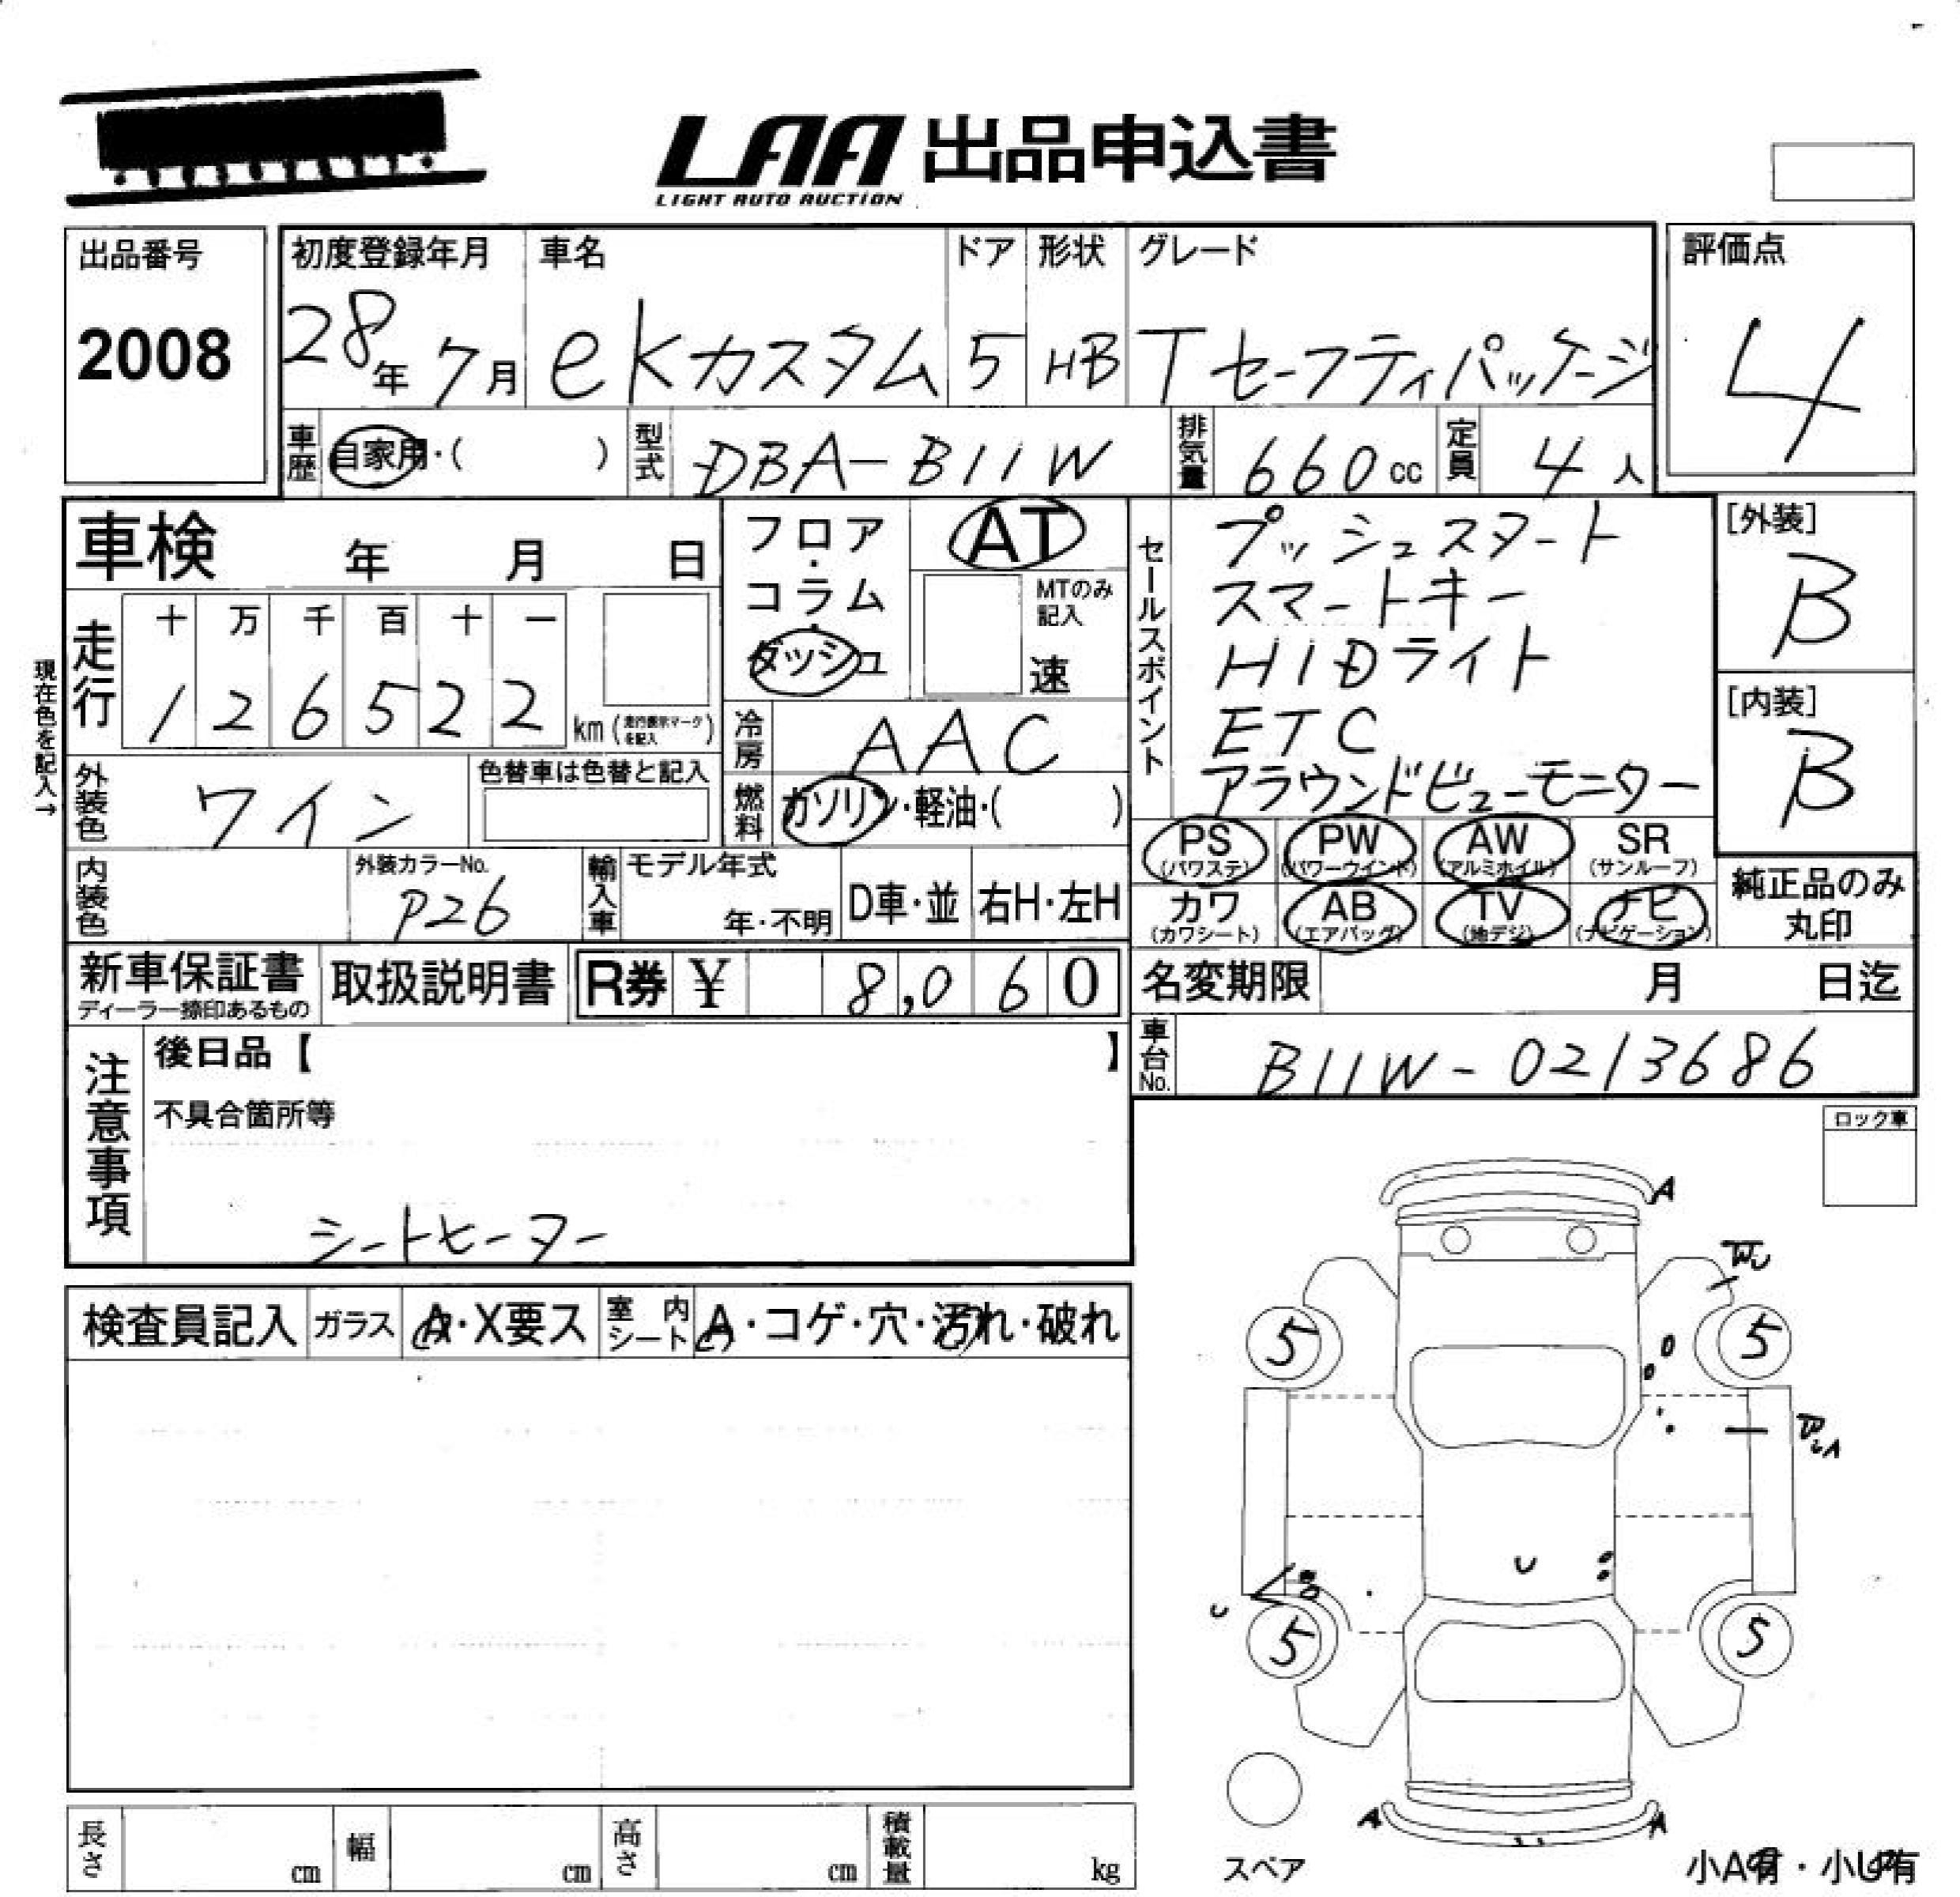 LAA 出品申込書
LIGHT AUTO AUCTION
出品番号
2008
初度登録年月
28年 7月
車名
eKカスタム
ドア
5
形状
HB
グレード
Tセーフティパッケージ
評価点
4
車歴 自家用・( )
型式 DBA-B11W
排気量 660cc
定員 4人
車検 年 月 日
フロア・コラム・ダッシュ
AT
MTのみ記入
速
セールスポイント
プッシュスタート
スマートキー
HIDライト
ETC
アラウンドビューモニター
[外装]
B
[内装]
B
現在色を記入→
走行
十 万 千 百 十 一
1 2 6 5 2 2 km (走行表示マークを記入)
冷房 AAC
外装色 ワイン
色替車は色替と記入
燃料 ガソリン・軽油・( )
PS (パワステ)
PW (パワーウインド)
AW (アルミホイル)
SR (サンルーフ)
カワ (カワシート)
AB (エアバッグ)
TV (地デジ)
ナビ (ナビゲーション)
純正品のみ丸印
内装色
外装カラーNo.
P26
輸入車
モデル年式
年・不明
D車・並
右H・左H
新車保証書
ディーラー捺印あるもの
取扱説明書
R券 ¥ 8,060
名変期限 月 日迄
車台No. B11W-0213686
注意事項
後日品【 】
不具合箇所等
シートヒーター
ロック車
検査員記入
ガラス
A・X要ス
室内シート
A・コゲ・穴・汚れ・破れ
A
5
5
U
U
5
5
A
A
スペア
小A有・小U有
長さ cm
幅 cm
高さ cm
積載量 kg